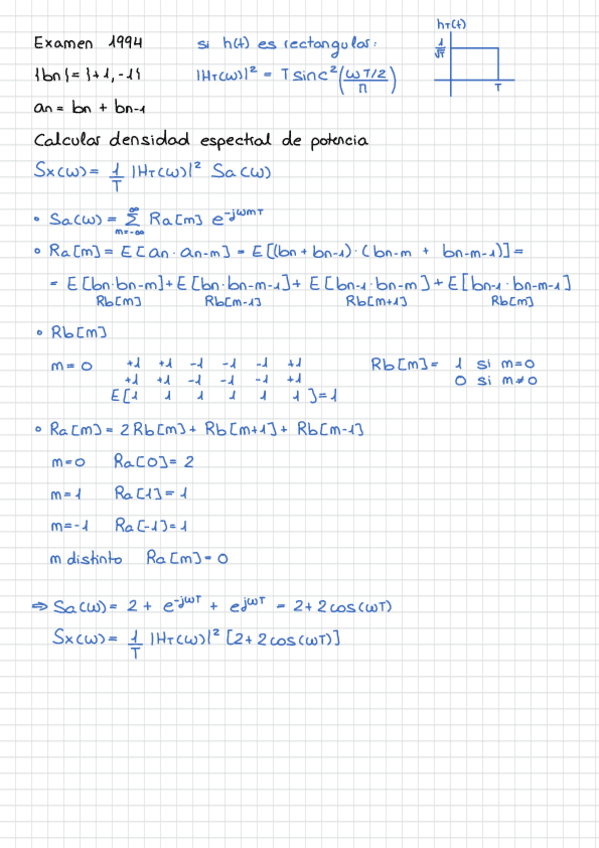 Examen 1994
si h(t) es rectangular:
hT(t)
1/√T
T
{bn} = {+1, -1}
|HT(ω)|² = T sinc² ((ωT/2)/π)
an = bn + bn-1
Calcular densidad espectral de potencia
Sx(ω) = 1/T |HT(ω)|² Sa(ω)
• Sa(ω) = ∑_{m=-∞}^{∞} Ra[m] e^{-jωmT}
• Ra[m] = E[an · an-m] = E[(bn + bn-1) · (bn-m + bn-m-1)] =
= E[bn·bn-m] + E[bn·bn-m-1] + E[bn-1·bn-m] + E[bn-1·bn-m-1]
Rb[m] Rb[m-1] Rb[m+1] Rb[m]
• Rb[m]
m = 0 +1 +1 -1 -1 -1 +1 Rb[m] = 1 si m=0
+1 +1 -1 -1 -1 +1 0 si m≠0
E[1 1 1 1 1 1] = 1
• Ra[m] = 2Rb[m] + Rb[m+1] + Rb[m-1]
m=0 Ra[0] = 2
m=1 Ra[1] = 1
m=-1 Ra[-1] = 1
m distinto Ra[m] = 0
⇒ Sa(ω) = 2 + e^{-jωT} + e^{jωT} = 2 + 2cos(ωT)
Sx(ω) = 1/T |HT(ω)|² [2 + 2cos(ωT)]